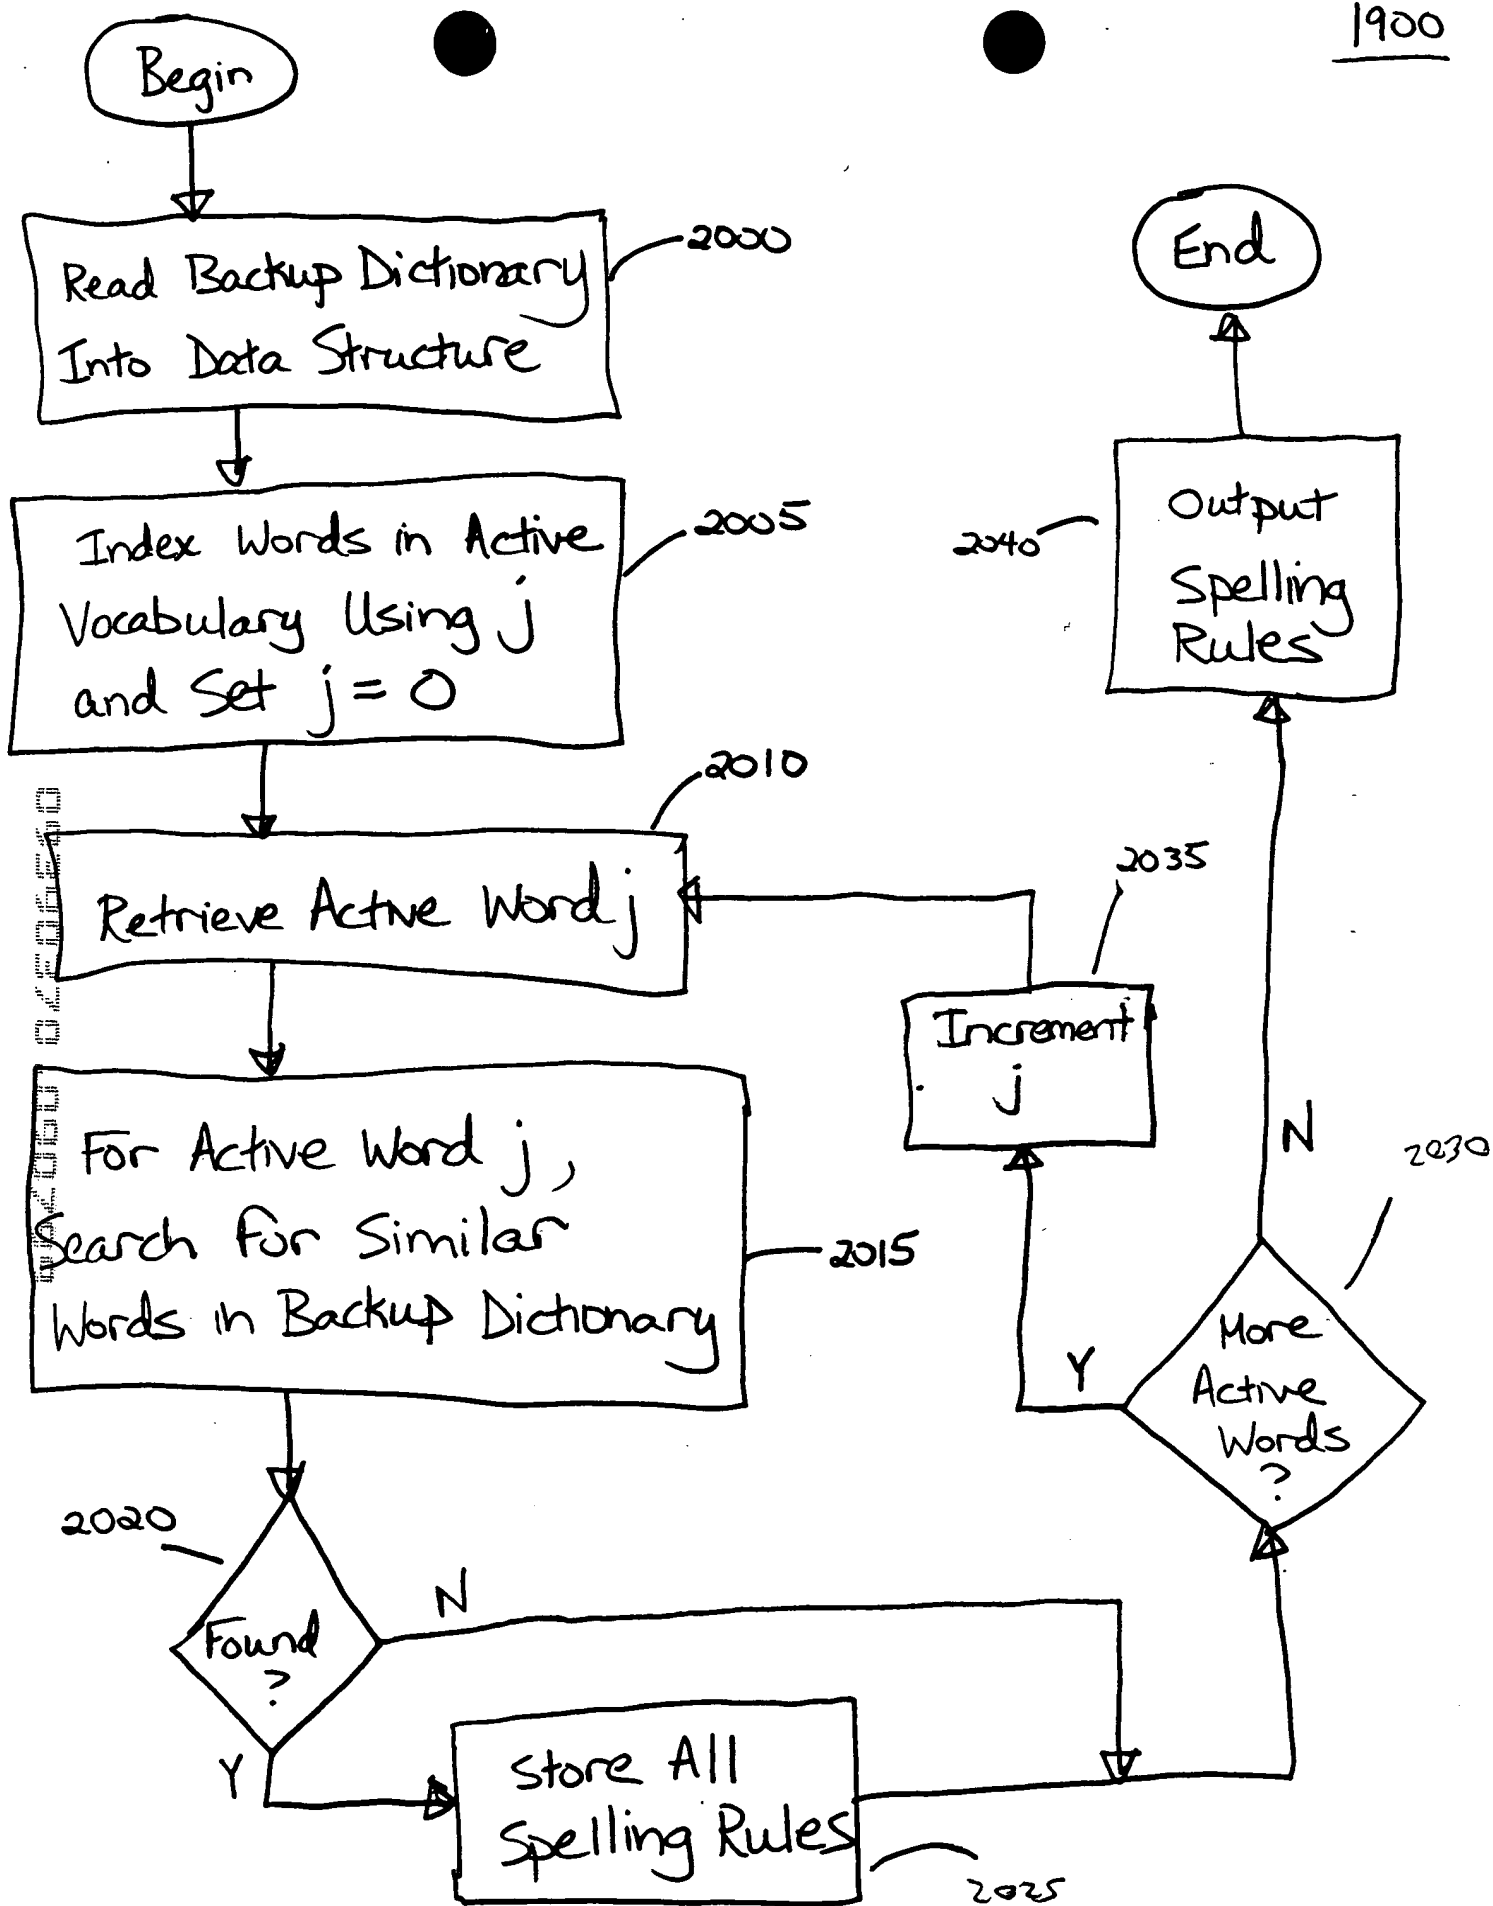 1900
Begin
2000
Read Backup Dictionary
Into Data Structure
2005
Index Words in Active
Vocabulary Using j
and Set j = 0
2010
Retrieve Active Word j
For Active Word j,
Search for Similar
Words in Backup Dictionary
2015
2020
Found
?
N
Y
Store All
Spelling Rules
2025
More
Active
Words
?
2030
Y
N
Increment
j
2035
Output
Spelling
Rules
2040
End